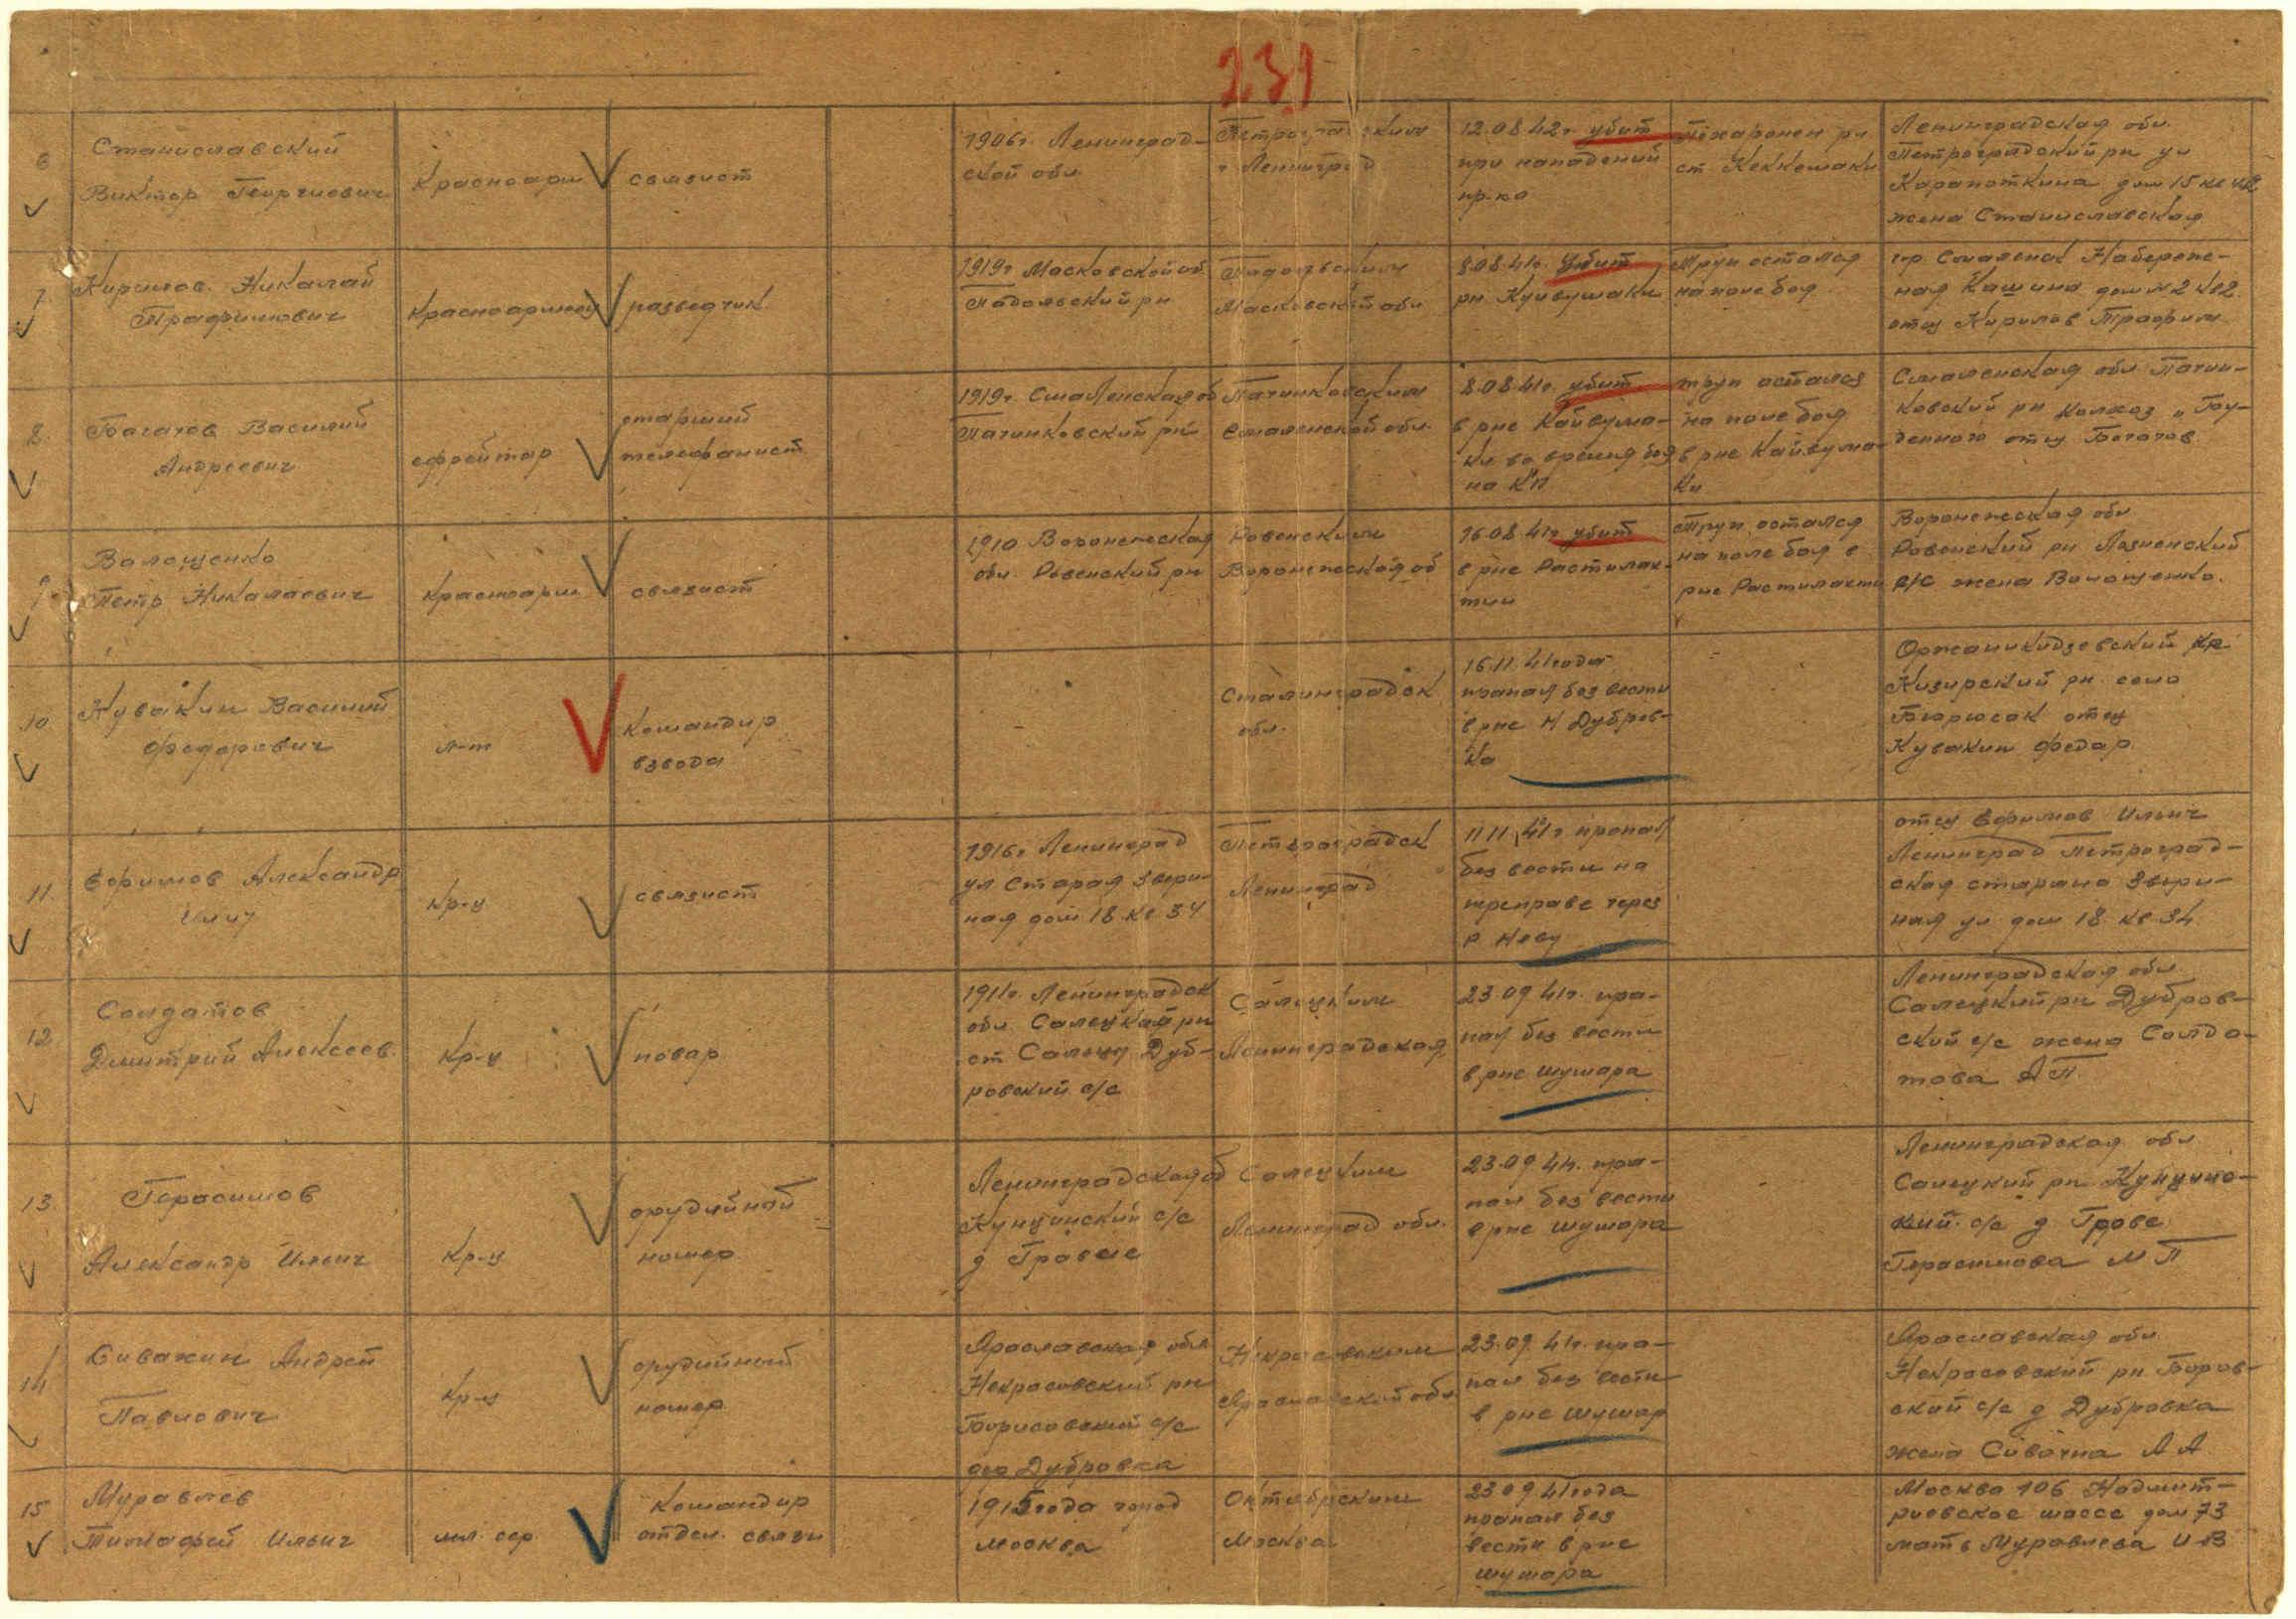 231
6
Станиславский
Виктор Георгиевич
Красноарм
связист
1906г. Ленинград-
ской обл
Петроградским
г. Ленинград
12.08.42г. убит
при нападений
пр-ка
Похаронен рн
ст. Кексомаки
Ленинградская обл.
Петроградский рн ул
Карапоткина дом 15 кв
жена Станиславская
7
Кирилов Николай
Трафимович
Красноармеец
разведчик.
1919г Московской об
Подольский рн
Подольским
Московской обл
8.08.41г. убит
рн
Труп остался
на поле боя
гр. Смаленск Набереж-
ная Кашина дом №2 кв2
отец Кирилов Трафим
8.
Богатов Василий
Андреевич
ефрейтор
старший
телефанист
1919г. Смаленская об
Пачинковский рн
Пачинковским
Смаленской обл.
8.08.41г. убит
в рне Кайвума-
ки во время боя
на КП
труп остался
на поле боя
в рне Кайвума-
ки
Смаленская обл Пачин-
ковский рн колхоз „Бу-
денного отец Богатов.
9
Валощенко
Петр Николаевич
Красноарм
связист
1910 Воронежская
обл. Ровенский рн
Ровенским
Воронежской об
16.08.41г убит
в рне Растилах-
тии
Труп остался
на поле боя в
рне Растилахти
Воронежская обл
Ровенский рн
с/с жена Волощенко.
10
Кувакин Василий
Федорович
л-т
Командир
взвода
-
Сталинградск
обл.
16.11.41года
пропал без вести
в рне Н Дубров-
ка
Оржаникидзевский кр
Кизирский рн. село
Бирюсак отец
Кувакин Федар.
11.
Ефимов Александр
Илич
Кр-ц
связист
1916г Ленинград
ул Старая Звери-
ная дом 18 кв 34
Петроградск
Ленинград
11 11 41г пропал
без вести на
переправе через
р Неву
отец Ефимов Ильич
Ленинград Петроград-
ская старана Звери-
ная ул дом 18 кв 34
12
Солдатов
Дмитрий Алексеев.
Кр-ц
повар
1911г. Ленинградск
обл Салецкай рн
ст Сальцы Дуб-
ровский с/с
Салецким
Ленинградская
23.09 41г. про-
пал без вести
в рне шушара
Ленинградская обл
Салецкий рн Дубров-
ский с/с жена Солда-
това А П.
13
Герасимов
Александр Ильич
Кр-ц
орудийный
номер
Ленинградская об
Кунцинский с/с
д
Салецким
Ленинград обл.
23.09 41г. про-
пал без вести
в рне шушара
Ленинградская обл
Салецкий рн
кий с/с д
Герасимова М П
14
Сивакин Андрей
Павлович
Кр-ц
орудийный
номер
Ярославская обл
Некрасовский рн
Борисовский с/с
дер Дубровка
Некрасовским
Ярославской обл
23.09 41г. про-
пал без вести
в рне шушар
Ярославская обл
Некрасовский рн Боров-
ский с/с д Дубровка
жена А А
15
Муравлев
Тимафей Ильич
мл. сер.
Командир
отдел. связи
1915года город
Москва
Октябрским
Москва
23 09 41года
пропал без
вести в рне
шушара
Москва 106 Надмит-
ровское шоссе дом 73
мать Муравлева И В